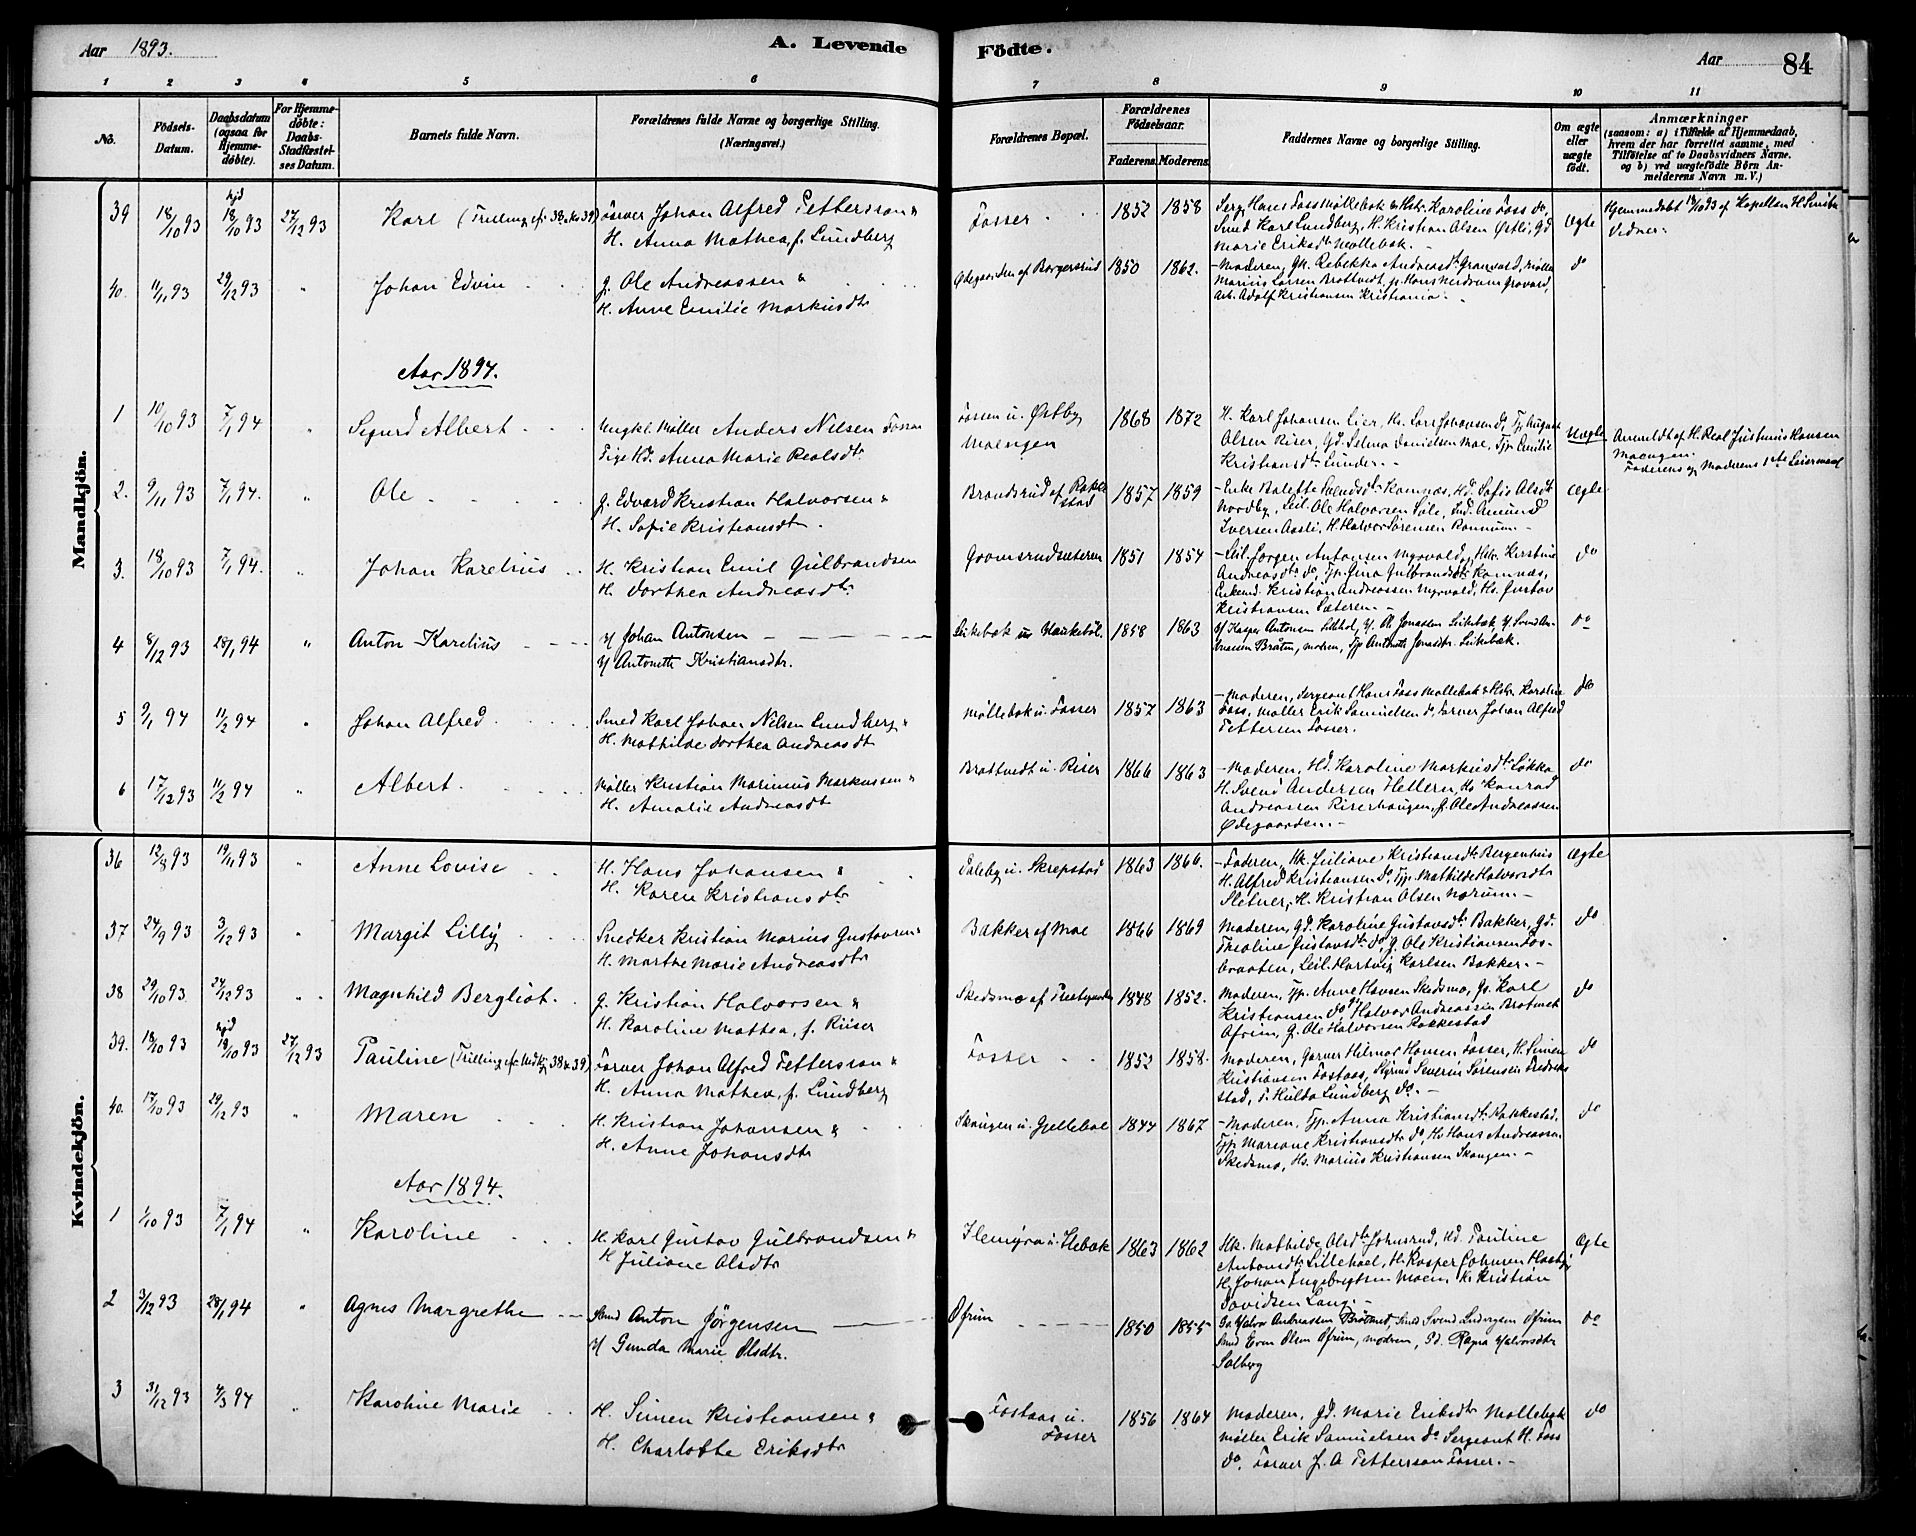 Aar 1893.
A. Levende
Födte.
Aar
84
1 2 3 4 5 6 7 8 9 10 11
No.
Födsels-Datum.
Daabsdatum (ogsaa for Hjemmedöbte).
For Hjemmedöbte: Daabs-Stadfæstelses Datum.
Barnets fulde Navn.
Forældrenes fulde Navne og borgerlige Stilling. (Næringsvei.)
Forældrenes Bopæl.
Forældrenes Födselsaar.
Faderens. Moderens.
Faddernes Navne og borgerlige Stilling.
Om ægte eller uægte födt.
Anmærkninger
(saasom: a) i Tilfælde af Hjemmedaab, hvem der har forrettet samme, med Tilföielse af to Daabsvidners Navne, og b) ved uægtefödte Börn Anmelderens Navn m. V.)
Mandkjön.
39 18/10 93 hjd 18/10 93 27/12 93 Karl (Trilling cfr. 38 Kv 39) Farver Johan Alfred Pettersson &
H. Anna Mathea, f. Lundberg
Fosser 1852 1858
Serg. Hans Foss Møllebæk & Hstr. Karoline Foss do,
Smed Karl Lundberg, H. Kristian Olsen Østli, Gd
Marie Eriksdtr Møllebæk.
Ægte
Hjemmedøbt 18/10 93 af Kapellan H.
Vidner
40. 11/11 93 29/12 93 " Johan Edvin g. Ole Andreassen &
H. Anne Emilie Markusdtr
Ødegaarden af Borgersrud 1850 1862.
Moderen, Gk. Rebekka Andreasdtr Granvard, Møller
Marius Larsen Brattvedt, g. Hans Nerdrum
Arb. Adolf Kristiansen Kristiania.
do
Aar 1894.
1 10/10 93 7/1 94 " Sigurd Albert Ungkl. Møller Anders Nilsen Fosser
Pige Hd. Anna Marie Realsdtr
Fossen u. Østby
Moengen
1868 1872
H. Karl Johansen Lier, Hs. Lars Johansen do, Tjp August
Olsen Riser, Gd. Selma Danielsen Moe, Tjp Emilie
Kristiansdtr Lunder.
Uægte
Anmeldt af H. Real Justnius Hansen
Moengen.
Faderens og Moderens 1ste Leiermaal
2. 9/11 93 7/1 94. " Ole g. Edvard Kristian Halvorsen &
H. Sofie Kristiansdtr.
Brandsrud af Rakkestad 1857 1859
Enke Balette Svendsdtr Kamnæs, Hd. Sofie Olsdtr
Nordby, Leil. Ole Halvorsen Søle, Ind. Amund
Iversen Aasli, H. Halvor Sørensen Rannum.
Ægte
3. 18/10 93 7/1 94. " Johan Karelius H. Kristian Emil Gulbrandsen
H. Dorthea Andreasdtr.
Gromsrudsæteren 1851 1854
Leil. Jørgen Antonsen Myrvold og Hstr. Kirstine
Andreasdtr do, Tjp. Gina Gulbrandsdtr Kamnæs,
Enkemd. Kristian Andreassen Myrvold, Hs. Gustav
Kristiansen Sæteren.
do
4 8/12 93 28/1 94 " Anton Karelius H Johan Antonsen
H Antonette Kristiansdtr.
Leikebæk u. Haukebøl. 1858 1863
H Kasper Antonsen Lillehol, H. Ole Jonassen Leikebæk, H. Svend
Braten, modren, Tjp Antonette Jonasdtr. Leikebæk.
do
5 9/1 94 11/2 94 " Johan Alfred Smed Karl Johan Nilsen Lundberg &
H. Mathilde Dorthea Andreasdtr
Møllebæk u. Fosser 1857 1863
Moderen, Sergeant Hans Foss Møllebæk & Hstr. Karoline
Foss, Møller Erik Samuelsen do, Farver Johan Alfred
Pettersen Fosser.
do
6 17/12 93 11/2 94 " Albert Møller Kristian Marinius Markussen &
H. Amalie Andreasdtr
Brattvedt u. Riser 1866 1863
Moderen, Hd. Karoline Markusdtr Løkka,
H. Svend Andersen Hellern, Hs Konrad
Andreassen Riserhaugen, g. Ole Andreassen
Ødegaarden.
do
Kvindekjön.
36 12/8 93 19/11 93 " Anne Lovise H. Hans Johansen &
H. Karen Kristiansdtr
Daleby u. Skrepstad 1863 1866.
Faderen, Hk. Juliane Kristiansdtr Bergenhus
H. Alfred Kristiansen do, Tjp. Mathilde Halvorsdtr
Sletner, H. Kristian Olsen Nærum.
Ægte
37 24/9 93 3/12 93 " Margit Lilly Snedker Kristian Marius Gustavsen &
H. Marthe Marie Andreasdtr
Bakker af Moe 1866 1869
Moderen, Gd. Karoline Gustavsdtr Bakker, Gd.
Theoline Gustavsdtr do, g. Ole Kristiansen Fosbraaten,
Leil. Hartvig Karlsen Bakker.
do
38 29/10 93 27/12 93 " Magnhild Bergliot g. Kristian Halvorsen &
H. Karoline Mathea, f. Riiser
Skedsmo af Prestegaarden 1848 1852.
Moderen, Tjp. Anne Hansen Skedsmo, Gs. Karl
Kristiansen do, Halvor Andreassen Bratnet
Øfrim, g. Ole Halvorsen Rakkestad
do
39. 18/10 93 hjd 18/10 93 27/12 93 Pauline (Trilling cfr. Mdkj. 38 & 39) Farver Johan Alfred Pettersson &
H. Anna Mathea, f. Lundberg
Fosser 1852 1858.
Moderen, Garver Hilmar Hansen Fosser, H. Simen
Kristiansen Fostaas, Styrmd Severin Sørensen Fredrikstad,
P. Hulda Lundberg do.
do
40. 17/10 93 29/12 93 " Maren H. Kristian Johansen &
H. Anne Johansdtr
Skougen u. Gjellebæk 1844 1867
Moderen, Tjp. Anna Kristiansdtr Rakkestad,
Tjp Mariane Kristiansdtr do, Hs Hans Andreassen
Skedsmo, Hs. Marius Kristiansen Skougen.
do
Aar 1894.
1 1/10 93 7/1 94 " Karoline H. Karl Gustav Gulbrandsen &
H Juliane Olsdtr
Flemyra u. Hebæk 1863 1862
Hk. Mathilde Olsdtr Johnsrud, Hd. Pauline
Antonsdtr Lillehoel, Hs Kasper Johnsen
H. Johan Ingebrigtsen Moen, H. Kristian
Davidsen Lang.
Ægte
2 3/12 93 28/1 94 " Agnes Margrethe Smd Anton Jörgensen
H Gunda Marie Olsdtr.
Øfrim 1850 1855
Gs Halvor Andreassen Bråtnet, Smd Svend Ludvigsen Øfrim
Smd Even Olsen Øfrim, modren, Gd. Ragna Halvorsdtr
Solberg
do
3 31/12 93 4/3 94 " Karoline Marie H. Simen Kristiansen &
H. Charlotte Eriksdtr
Fostaas u.
Fosser
1856 1864
Moderen, Gd. Marie Eriksdtr Møllebæk
Møller Erik Samuelsen do Sergeant H. Foss
do, Farver J. A Pettersson Fosser.
do